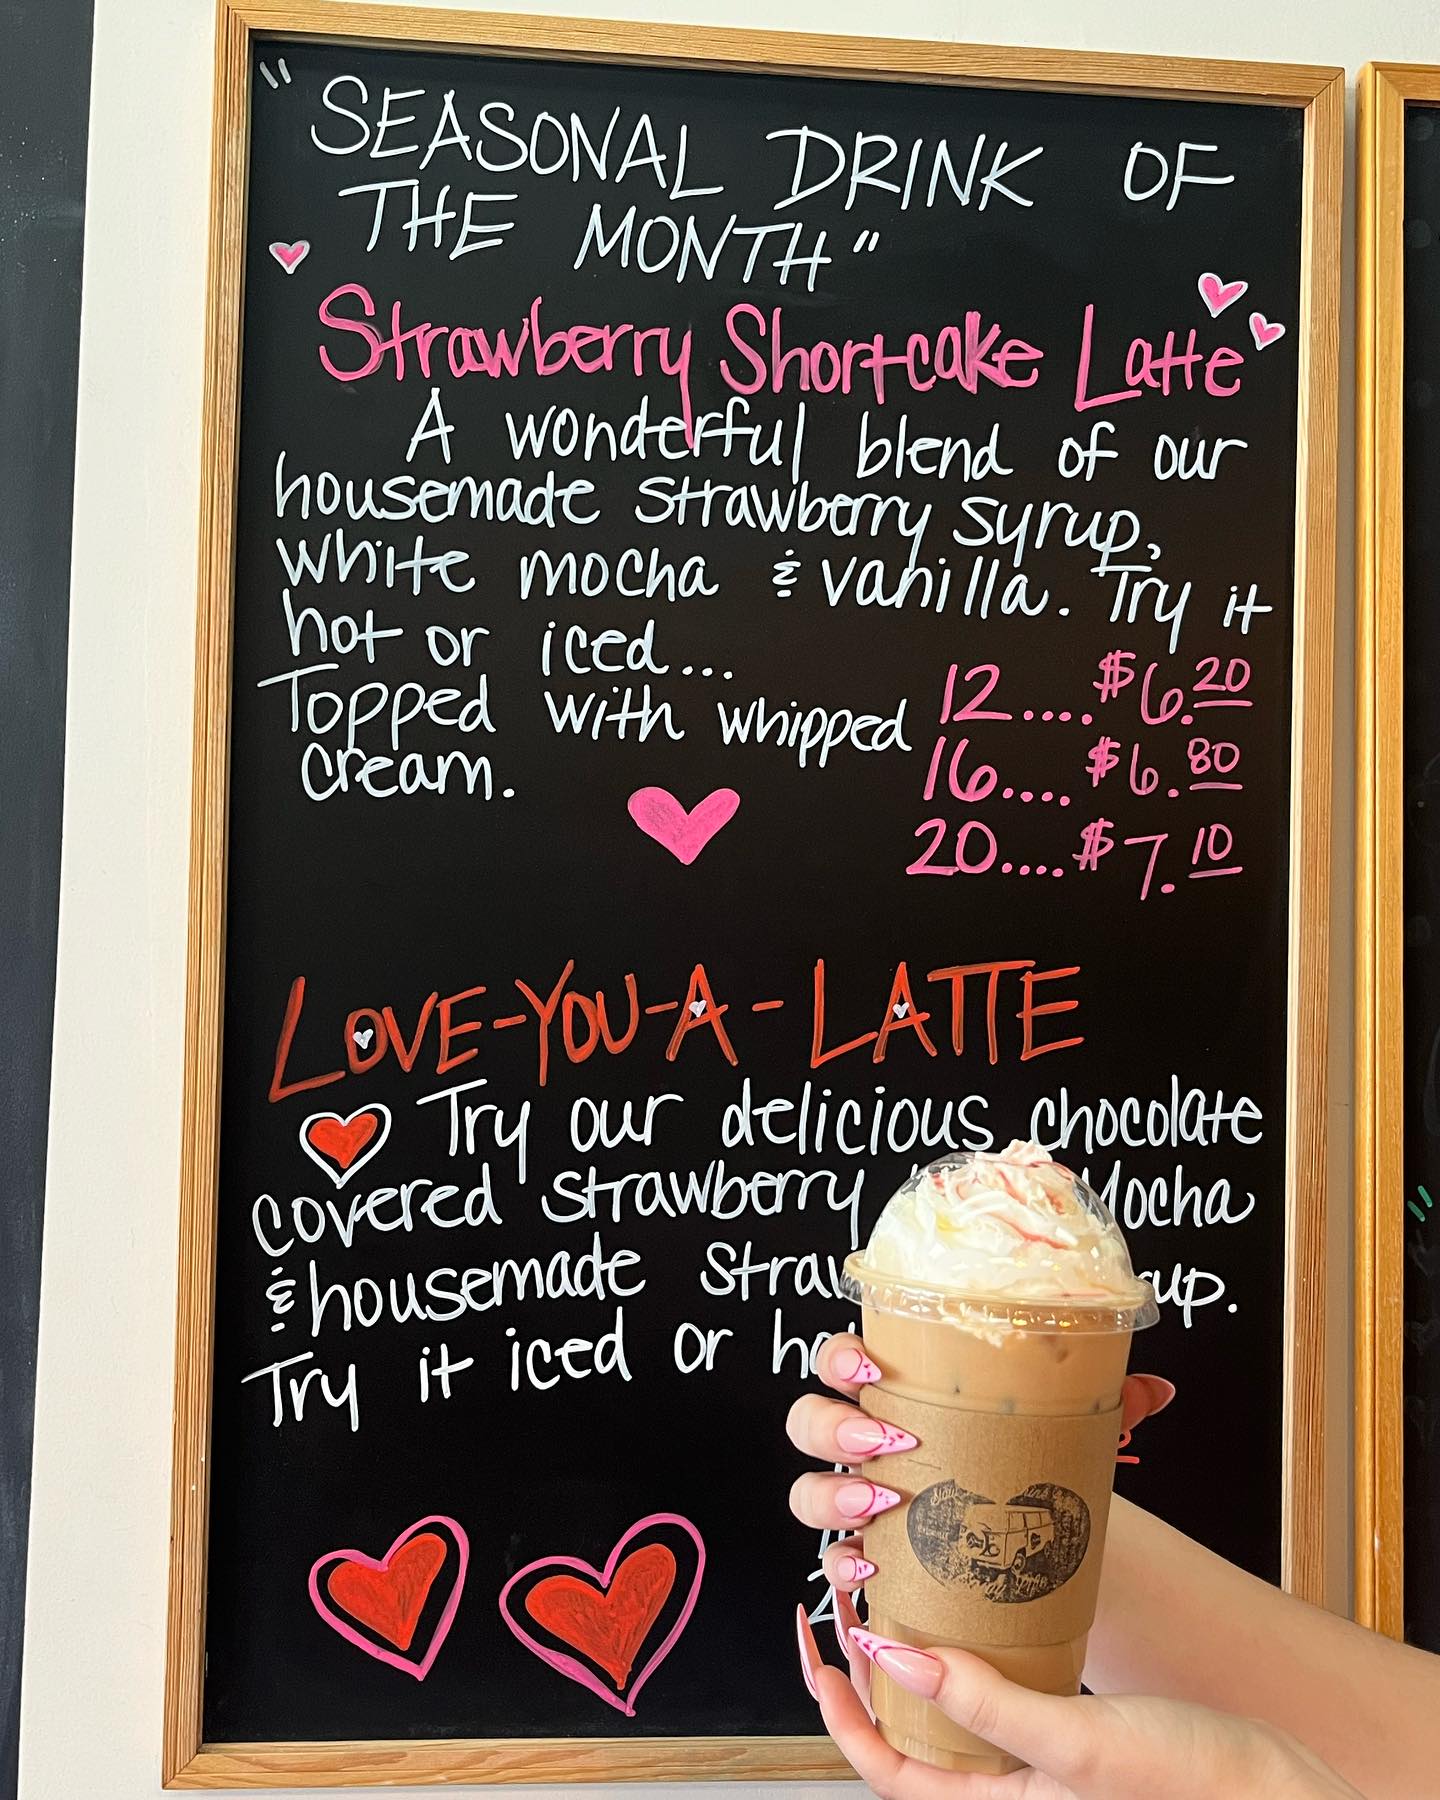 "SEASONAL DRINK OF
THE MONTH"
Strawberry Shortcake Latte
A wonderful blend of our
housemade strawberry syrup,
white mocha & vanilla. Try it
hot or iced...
Topped with whipped
cream.
12....$6.20
16....$6.80
20....$7.10
LOVE-YOU-A-LATTE
Try our delicious chocolate
covered strawberry Mocha
& housemade
Try it iced or